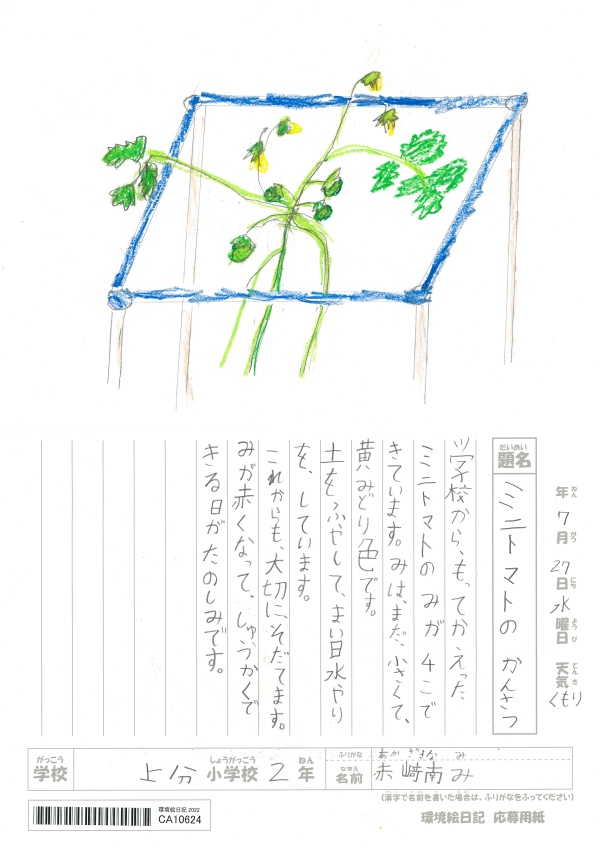 年 7月 27日 水曜日 天気 くもり
ねん がつ にち ようび てんき
だいめい
題名 ミニトマトの かんさつ
学校から、もってかえった
ミニトマトの みが 4こで
きています。みは、まだ、小さくて、
黄みどり色です。
土をふやして、まい日水やり
を、しています。
これからも、大切に、そだてます。
みが赤くなって、しゅうかくで
きる日がたのしみです。
がっこう しょうがっこう ねん ふりがな あかざきな み
学校 上分 小学校 2 年 なまえ 名前 赤﨑南み
(漢字で名前を書いた場合は、ふりがなをふってください)
環境絵日記 応募用紙
環境絵日記 2022
CA10624